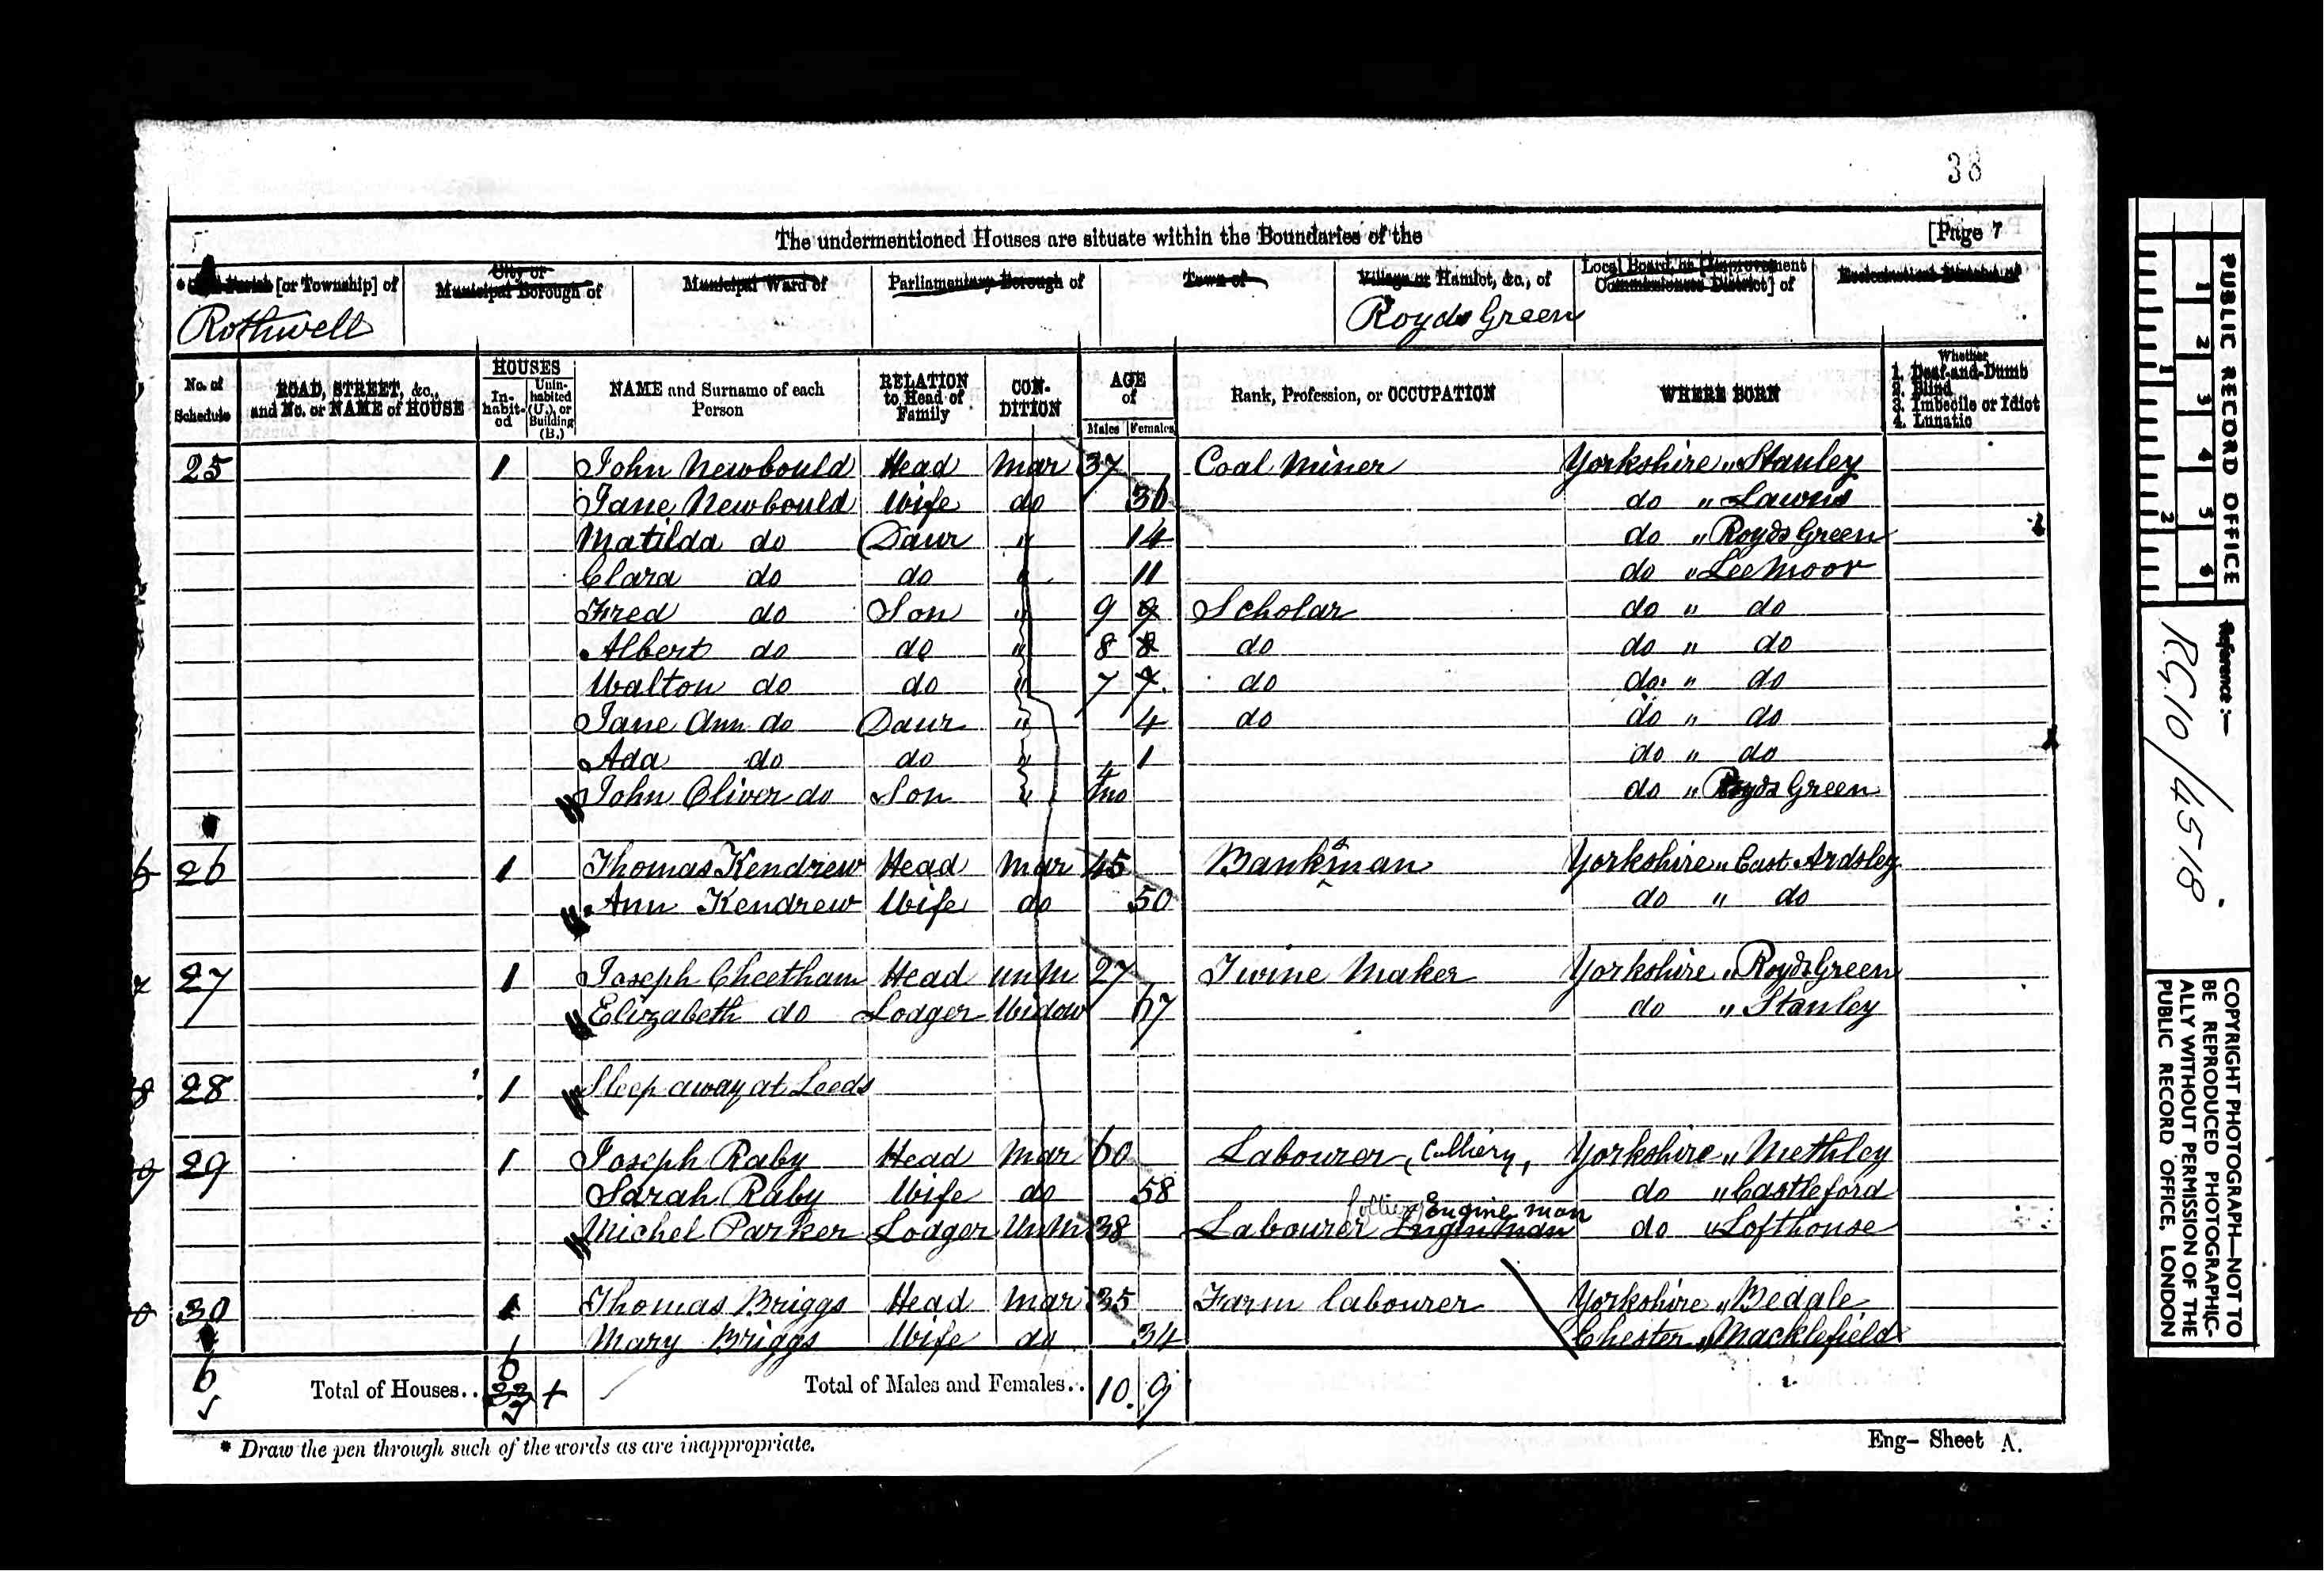 38
The undermentioned Houses are situate within the Boundaries of the [Page 7
Parish [or Township] of
City or Municipal Borough of
Municipal Ward of
Parliamentary Borough of
Town of
Village or Hamlet, &c., of
Local Board, or [Improvement Commissioners District] of
Ecclesiastical District of
Rothwell Royds Green
No. of Schedule
ROAD, STREET, &c., and No. or NAME of HOUSE
HOUSES
In-habit-ed
Unin-habited (U.), or Building (B.)
NAME and Surname of each Person
RELATION to Head of Family
CON-DITION
AGE of
Males Females
Rank, Profession, or OCCUPATION
WHERE BORN
Whether
1. Deaf-and-Dumb
2. Blind
3. Imbecile or Idiot
4. Lunatic
25 1 John Newbould Head Mar 37 Coal Miner Yorkshire " Stanley
Jane Newbould Wife do 36 do " Lawns
Matilda do Daur " 14 do " Royds Green
Clara do do " 11 do " Lee Moor
Fred do Son " 9 9 Scholar do " do
Albert do do " 8 8 do do " do
Walton do do " 7 7 do do " do
Jane Ann do Daur " 4 do do " do
Ada do do " 1 do " do
John Oliver do Son " 4 mo do " Royds Green
26 1 Thomas Kendrew Head Mar 45 Banksman Yorkshire " East Ardsley
Ann Kendrew Wife do 50 do " do
27 1 Joseph Cheetham Head UnM 27 Twine Maker Yorkshire " Royds Green
Elizabeth do Lodger Widow 67 do " Stanley
28 1 Sleep away at Leeds
29 1 Joseph Raby Head Mar 60 Labourer, Colliery, Yorkshire " Methley
Sarah Raby Wife do 58 do " Castleford
Colliery Engine man
Michel Parker Lodger UnM 38 Labourer Engineman do " Lofthouse
30 1 Thomas Briggs Head Mar 35 Farm labourer Yorkshire " Bedale
Mary Briggs Wife do 34 Chester " Macklefield
6 Total of Houses.. 6 Total of Males and Females.. 10. 9
* Draw the pen through such of the words as are inappropriate.
Eng- Sheet A.
PUBLIC RECORD OFFICE
1 2 3 4 5 6
1 2
Reference :-
RG10/4518
COPYRIGHT PHOTOGRAPH—NOT TO
BE REPRODUCED PHOTOGRAPHIC-
ALLY WITHOUT PERMISSION OF THE
PUBLIC RECORD OFFICE, LONDON